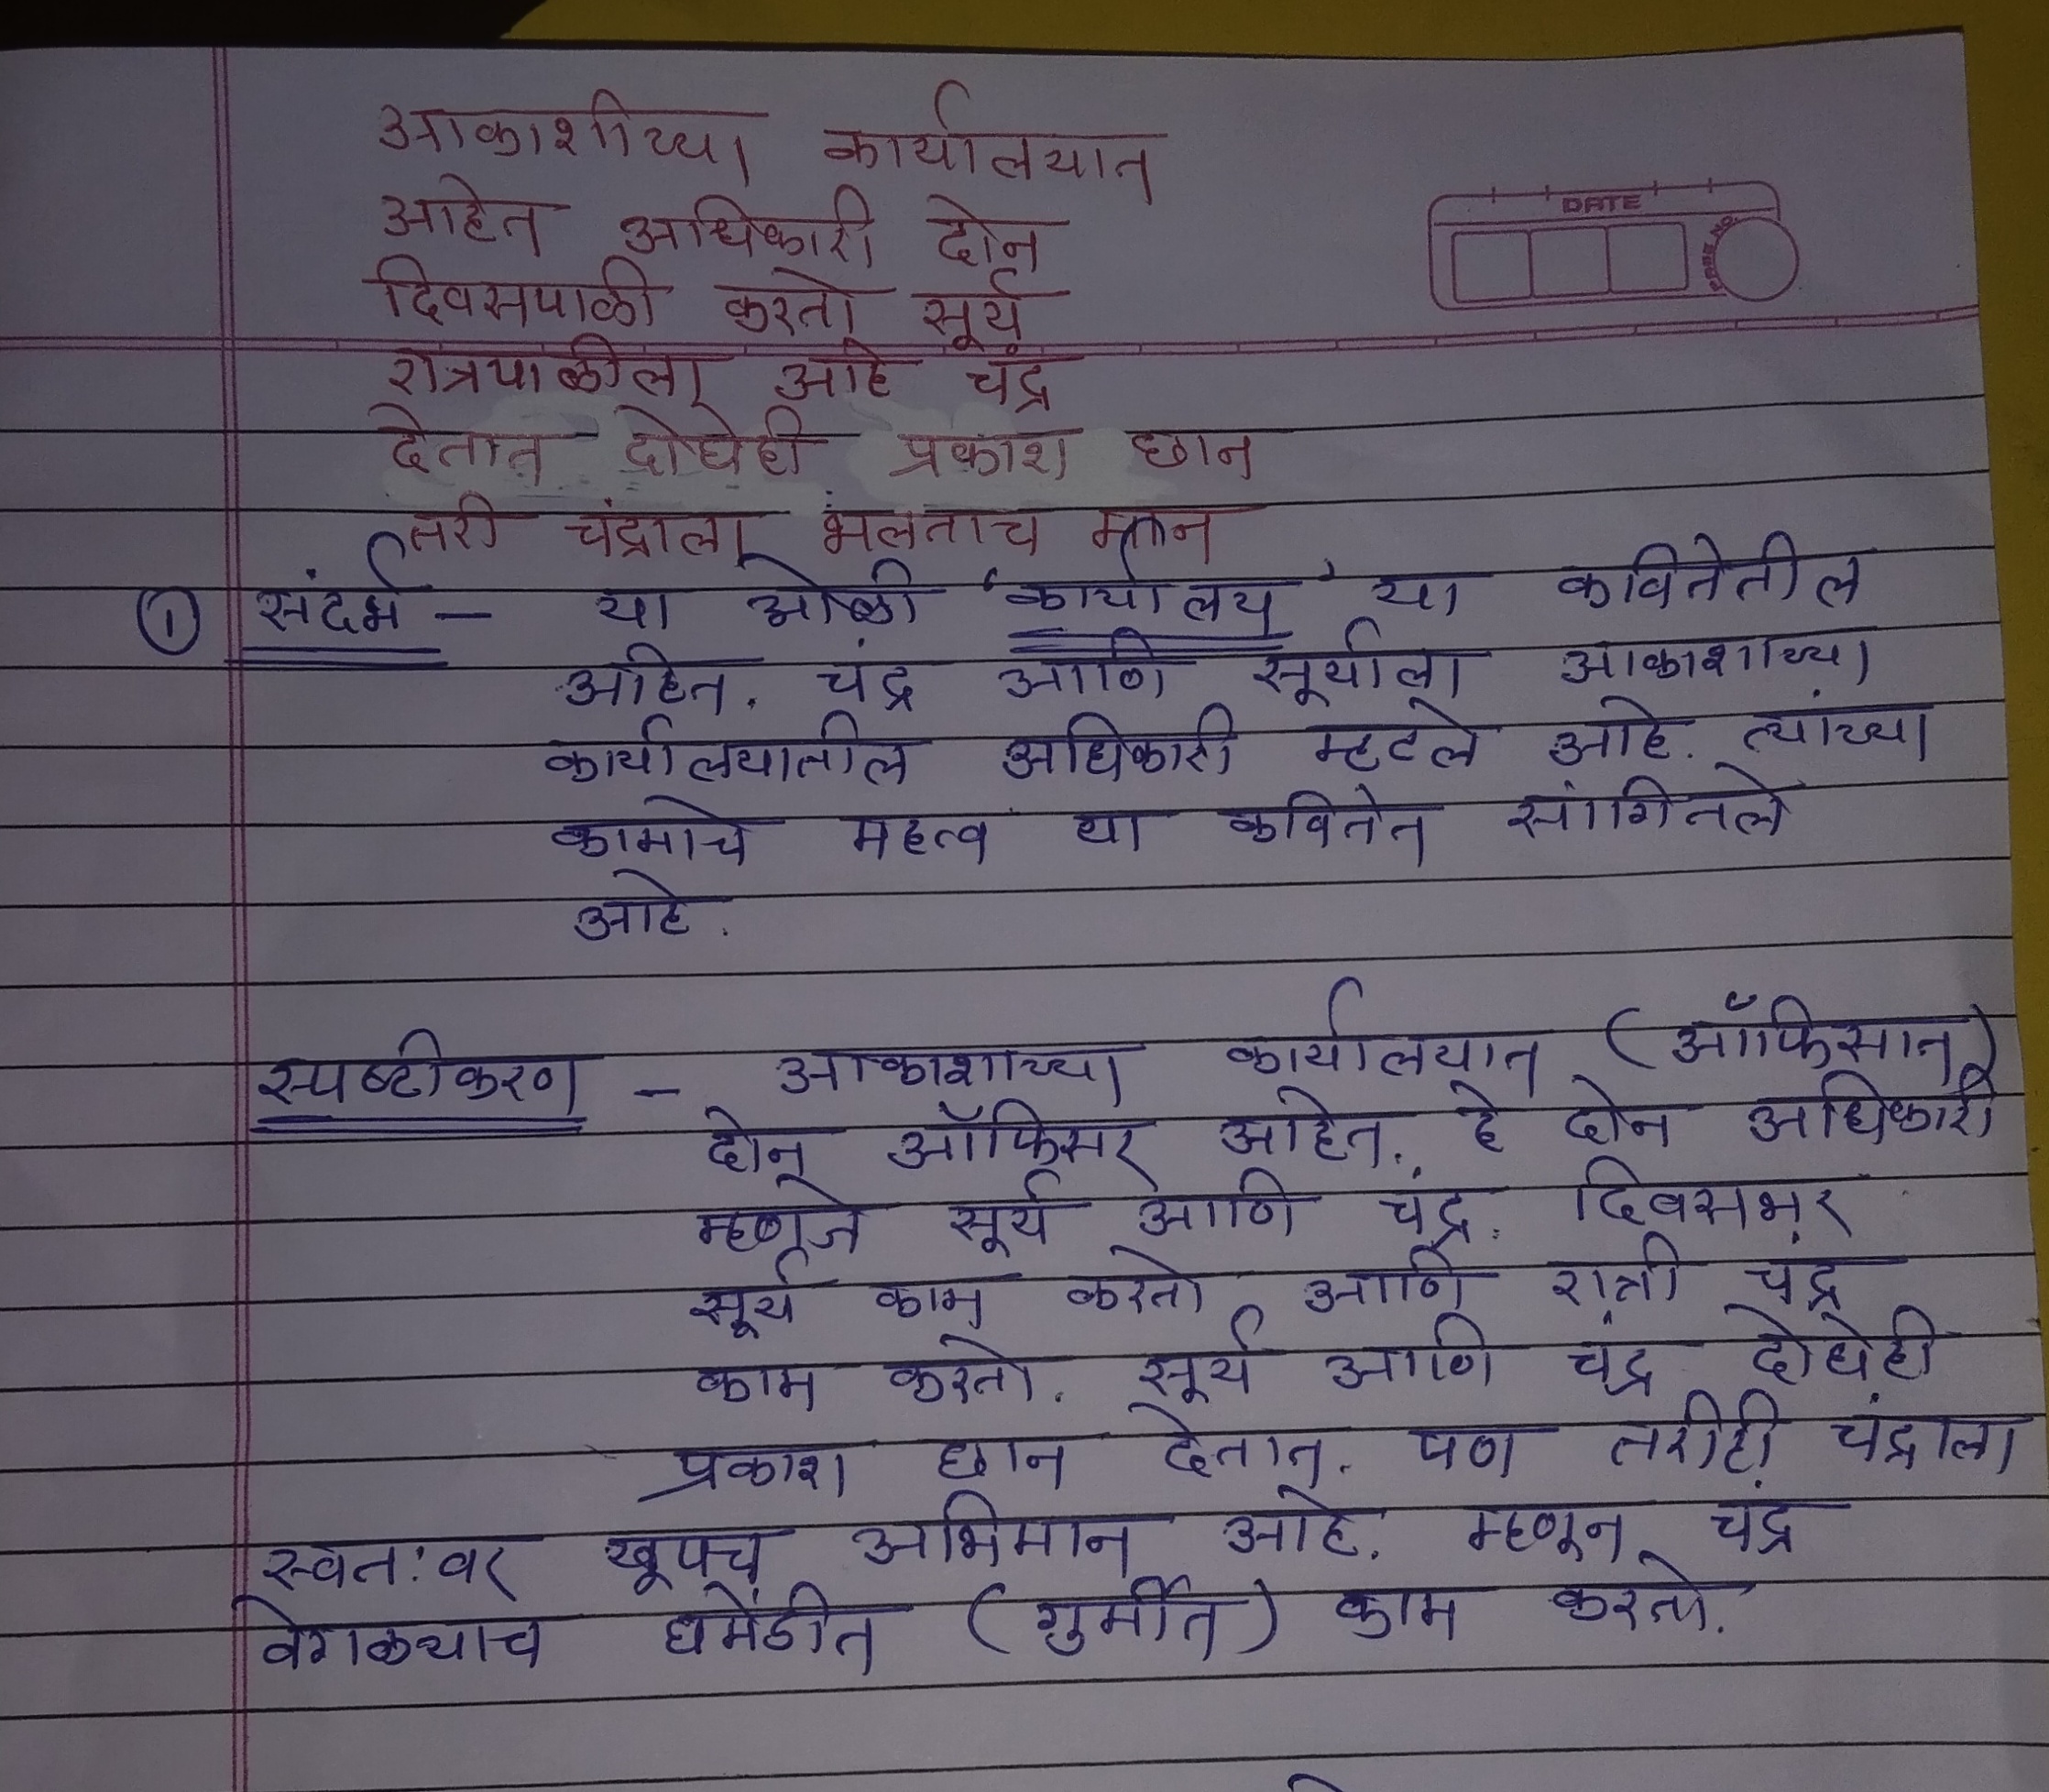 आकाशीच्या कार्यालयात
आहेत अधिकारी दोन
DATE
PAGE NO.
दिवसपाळी करतो सूर्य
रात्रपाळीला आहे चंद्र
देतात दोघेही प्रकाश छान
तरी चंद्राला भलताच मान
① संदर्भ - या ओळी 'कार्यालय' या कवितेतील
आहेत. चंद्र आणि सूर्याला आकाशाच्या
कार्यालयातील अधिकारी म्हटले आहे. त्यांच्या
कामाचे महत्व या कवितेत सांगितले
आहे.
स्पष्टीकरण - आकाशाच्या कार्यालयात (ऑफिसात)
दोन ऑफिसर आहेत. हे दोन अधिकारी
म्हणजे सूर्य आणि चंद्र. दिवसभर
सूर्य काम करतो आणि रात्री चंद्र
काम करतो. सूर्य आणि चंद्र दोघेही
प्रकाश छान देतात. पण तरीही चंद्राला
स्वतःवर खूपच अभिमान आहे. म्हणून चंद्र
वेगळ्याच घमेंडीत (गुर्मीत) काम करतो.